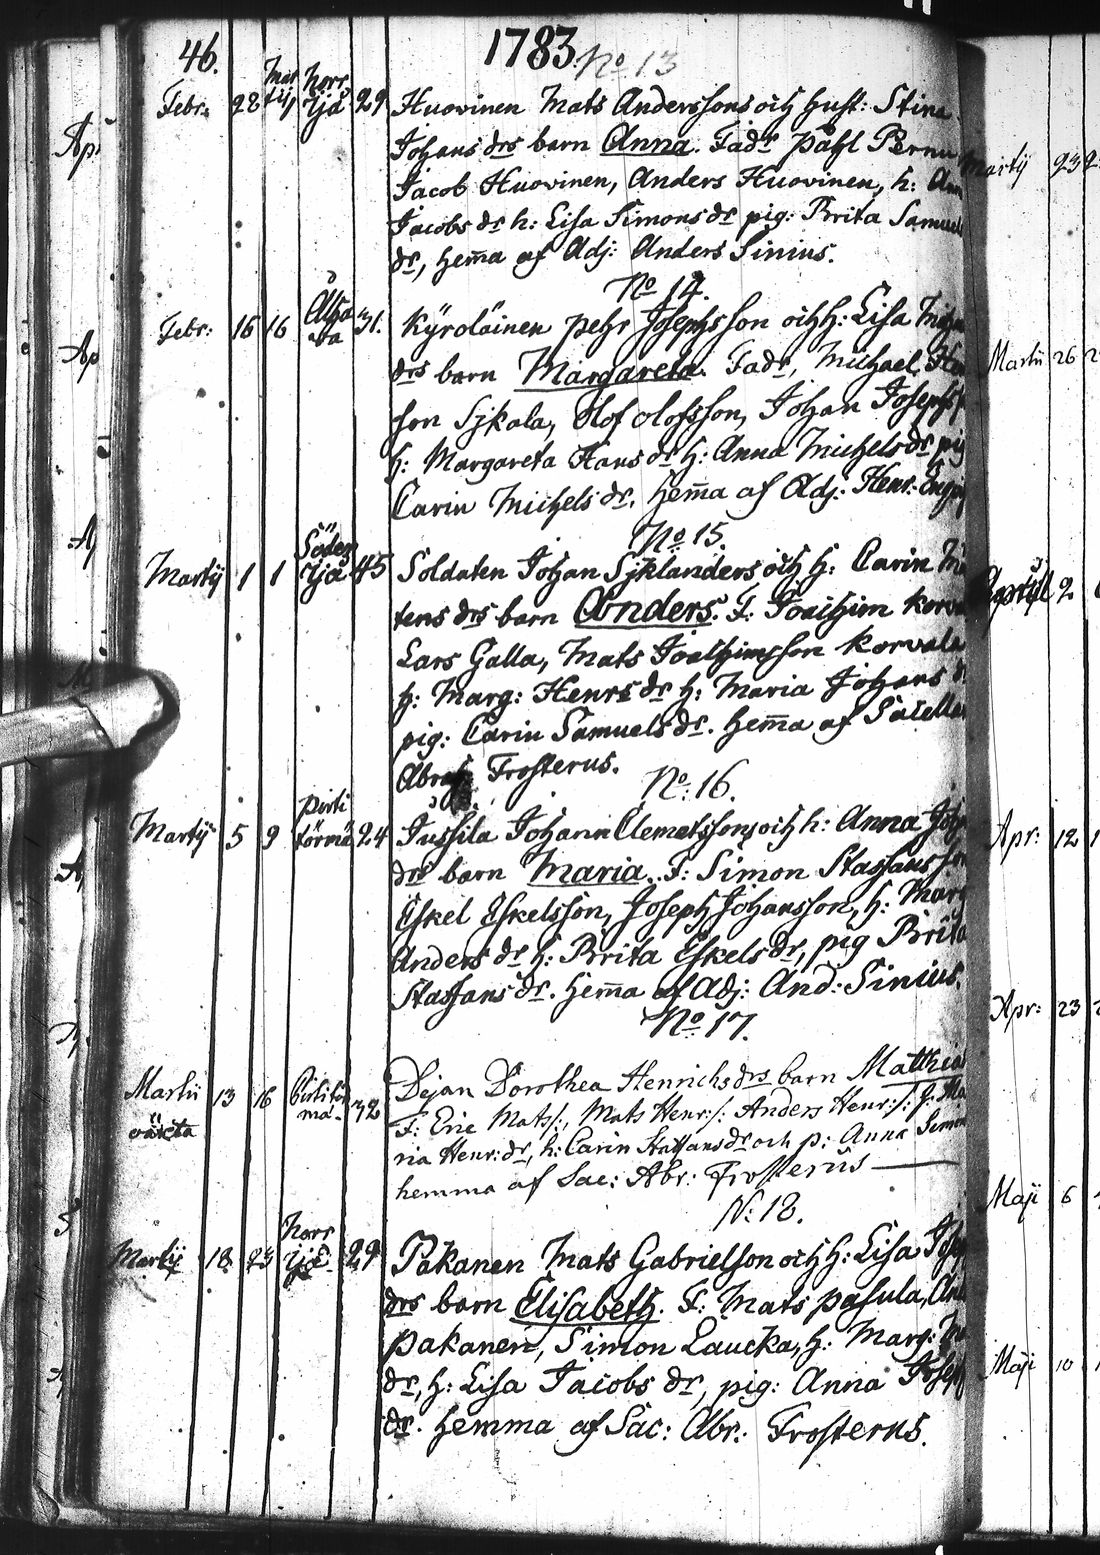 46. 1783. No 13
Febr. 28 Mar tij 1 Norr sjö 29 Huovinen Mats Anderssons och Hust: Stina
Johans drs barn Anna. Fadr Påhl Pernu
Jacob Huovinen, Anders Huovinen, h: Ann
Jacobs dr h: Lisa Simons dr pig: Brita Samuels
dr, hem̄a af Adj: Anders Sinius.
No 14.
Febr: 16 16 31. Kyröläinen Pehr Josephsson och h: Lisa
drs barn Margareta. Fadr, Michael
son Sykala, Olof Olofsson, Johan Josephs
h: Margareta Hans dr h: Anna Michels dr pig
Carin Michels dr, hem̄a af Adj: Henr:
No 15.
Martij 1 1 Söder sjö 45 Soldaten Johan Sjklanders och h: Carin
tens drs barn Anders. F: Joachim Korva
Lars Galla, Mats Joachimsson Korvala
h: Marg: Henrs dr h: Maria Johans
pig: Carin Samuels dr. hem̄a af Sacella
Abrah: Frosterus.
No: 16.
Martij 5 9 Pirti törmä 24 Jussila Johan Clemetssons och h: Anna Joh
drs barn Maria. F: Simon Staffansson
Eskel Eskelsson, Joseph Johansson, h: Marg
Anders dr h: Brita Eskels dr, pig Brita
Staffans dr. hem̄a af Adj: And: Sinius.
No 17.
Martii 13 16 Pirtitör mä. 32 Pejan Dorothea Henrichs drs barn Matthias
oäkta F: Eric Mats/:, Mats Henr:/: Anders Henr:/: h: Ma
ria Henr: dr, h: Carin Staffans dr och p: Anna Simon
hemma af Sac: Abr: Frosterus
N: 18.
Martij 18 23 Norr sjö 29 Pakanen Mats Gabrielsson och h: Lisa Josep
drs barn Elisabeth. F: Mats Pasula, And
Pakanen, Simon Laucka, h: Marg:
dr, h: Lisa Jacobs dr, pig: Anna Joseph
dr. hemma af Sac: Abr: Frosterus.
Martij 23
Martii 26
Aprill 2
Apr: 12
Apr: 23
Maji 6
Maji 10